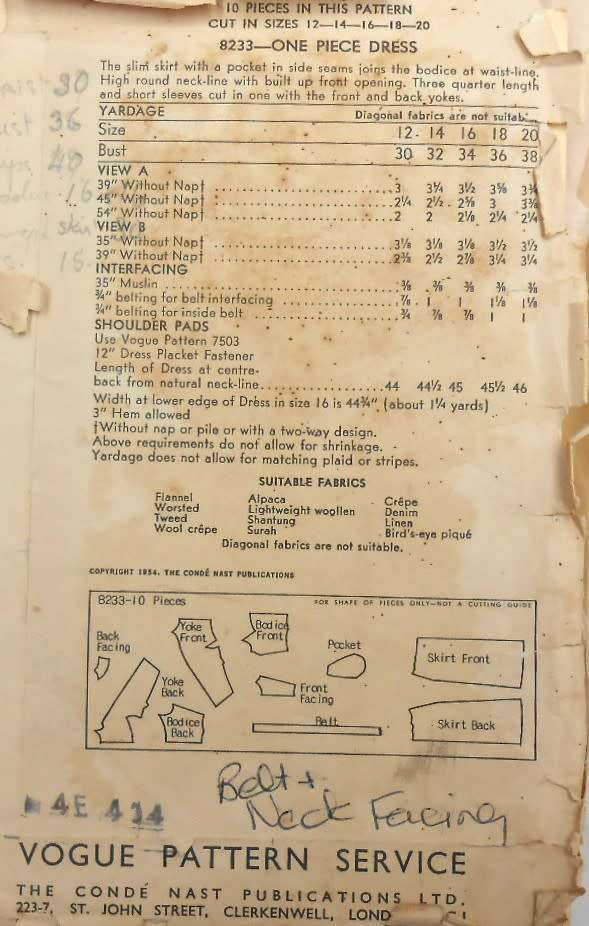 10 PIECES IN THIS PATTERN
CUT IN SIZES 12—14—16—18—20
8233—ONE PIECE DRESS
The slim skirt with a pocket in side seams joins the bodice at waist-line.
High round neck-line with built up front opening. Three quarter length
and short sleeves cut in one with the front and back yokes.
YARDAGE Diagonal fabrics are not
Size 12 14 16 18 20
Bust 30 32 34 36 38
VIEW A
39" Without Nap† 3 3¼ 3½ 3⅝
45" Without Nap† 2¼ 2½ 2⅝ 3 3⅜
54" Without Nap† 2 2 2⅛ 2¼ 2¼
VIEW B
35" Without Nap† 3⅛ 3⅛ 3⅛ 3½ 3½
39" Without Nap† 2⅜ 2½ 2⅞ 3¼ 3¼
INTERFACING
35" Muslin ⅜ ⅜ ⅜ ⅜ ⅜
¾" belting for belt interfacing ⅞ 1 1 1⅛ 1⅛
¾" belting for inside belt ¾ ⅞ ⅞ 1 1
SHOULDER PADS
Use Vogue Pattern 7503
12" Dress Placket Fastener
Length of Dress at centre-
back from natural neck-line 44 44½ 45 45½ 46
Width at lower edge of Dress in size 16 is 44¾" (about 1¼ yards)
3" Hem allowed
†Without nap or pile or with a two-way design.
Above requirements do not allow for shrinkage.
Yardage does not allow for matching plaid or stripes.
30
36
40
16
15
SUITABLE FABRICS
Flannel Alpaca Crêpe
Worsted Lightweight woollen Denim
Tweed Shantung Linen
Wool crêpe Surah Bird's-eye piqué
Diagonal fabrics are not suitable.
COPYRIGHT 1954. THE CONDÉ NAST PUBLICATIONS
8233-10 Pieces FOR SHAPE OF PIECES ONLY—NOT A CUTTING GUIDE
Back
Facing
Yoke
Front
Bodice
Front
Pocket
Skirt Front
Yoke
Back
Front
Facing
Bodice
Back
Belt
Skirt Back
Belt +
Neck Facing
4E 414
VOGUE PATTERN SERVICE
THE CONDÉ NAST PUBLICATIONS LTD.
223-7, ST. JOHN STREET, CLERKENWELL, LOND